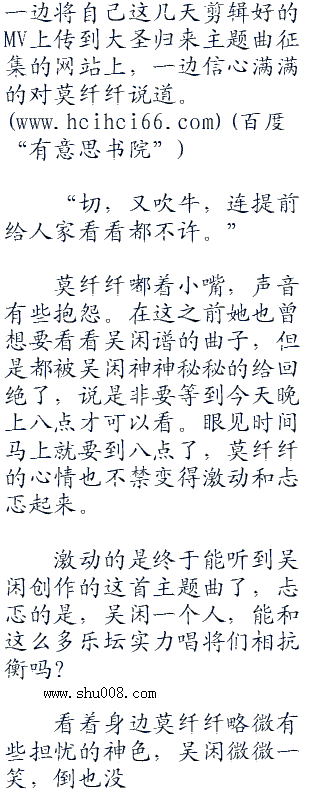 一边将自己这几天剪辑好的
MV上传到大圣归来主题曲征
集的网站上，一边信心满满
的对莫纤纤说道。
(www.hcihci66.com)(百度
“有意思书院”)
“切，又吹牛，连提前
给人家看看都不许。”
莫纤纤嘟着小嘴，声音
有些抱怨。在这之前她也曾
想要看看吴闲谱的曲子，但
是都被吴闲神神秘秘的给回
绝了，说是非要等到今天晚
上八点才可以看。眼见时间
马上就要到八点了，莫纤纤
的心情也不禁变得激动和忐
忑起来。
激动的是终于能听到吴
闲创作的这首主题曲了，忐
忑的是，吴闲一个人，能和
这么多乐坛实力唱将们相抗
衡吗？
www.shu008.com
看着身边莫纤纤略微有
些担忧的神色，吴闲微微一
笑，倒也没